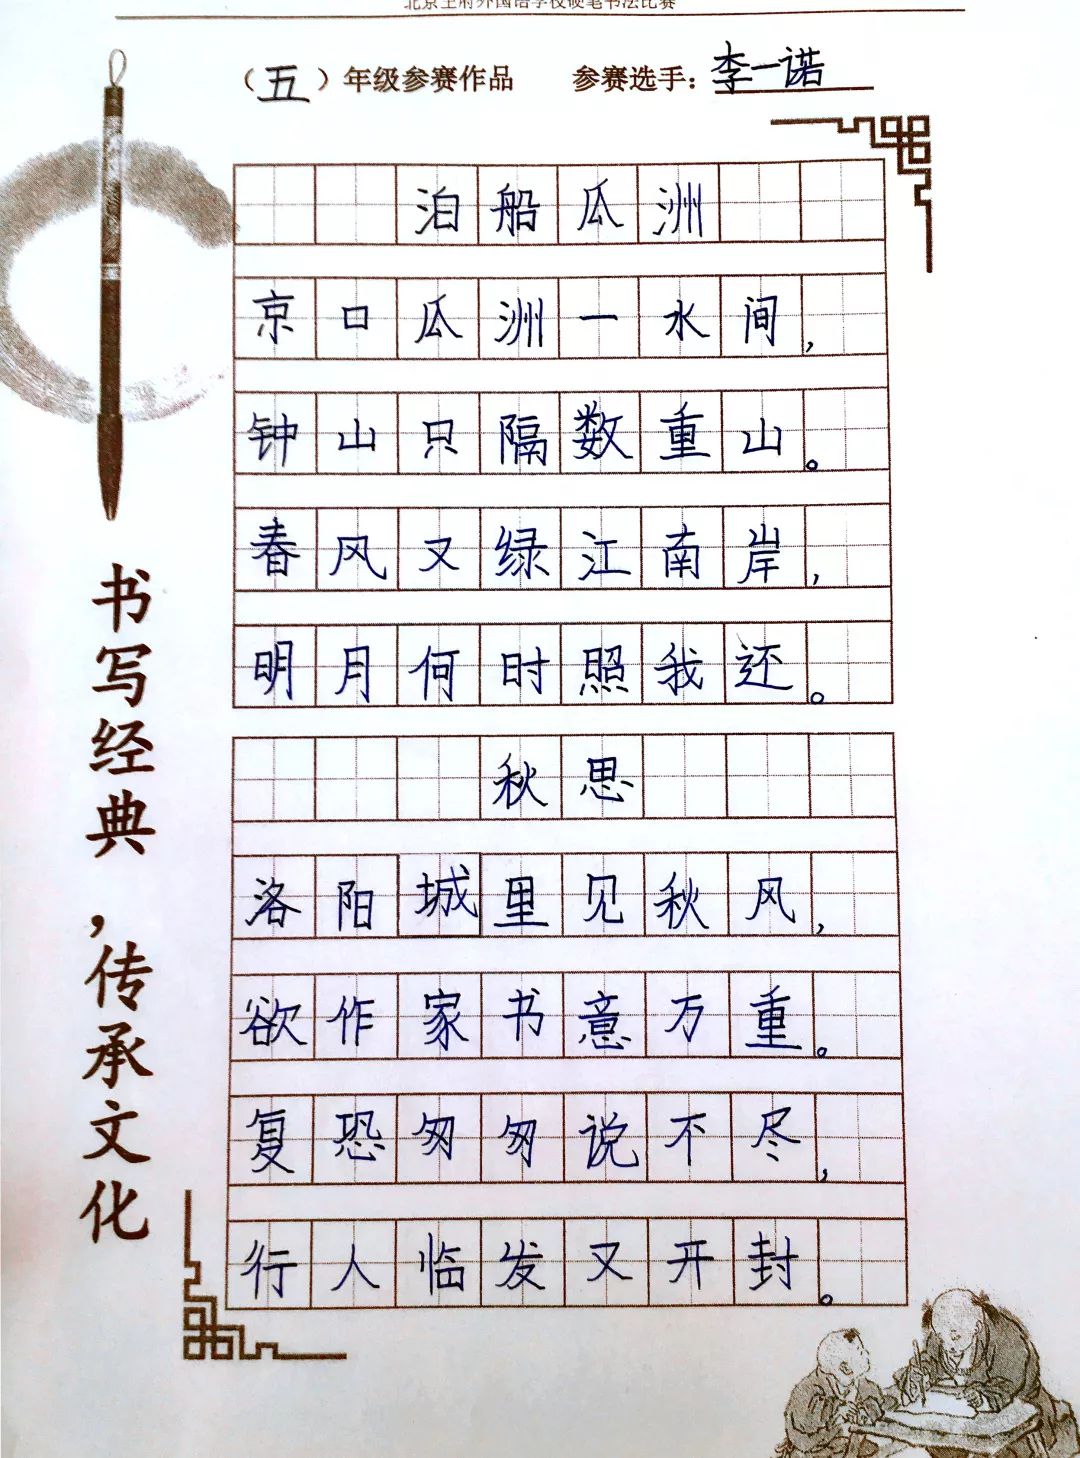 北京王府外国语学校硬笔书法比赛
（五）年级参赛作品 参赛选手：李一诺
泊船瓜洲
京口瓜洲一水间，
钟山只隔数重山。
春风又绿江南岸，
明月何时照我还。
秋思
洛阳城里见秋风，
欲作家书意万重。
复恐匆匆说不尽，
行人临发又开封。
书写经典，传承文化